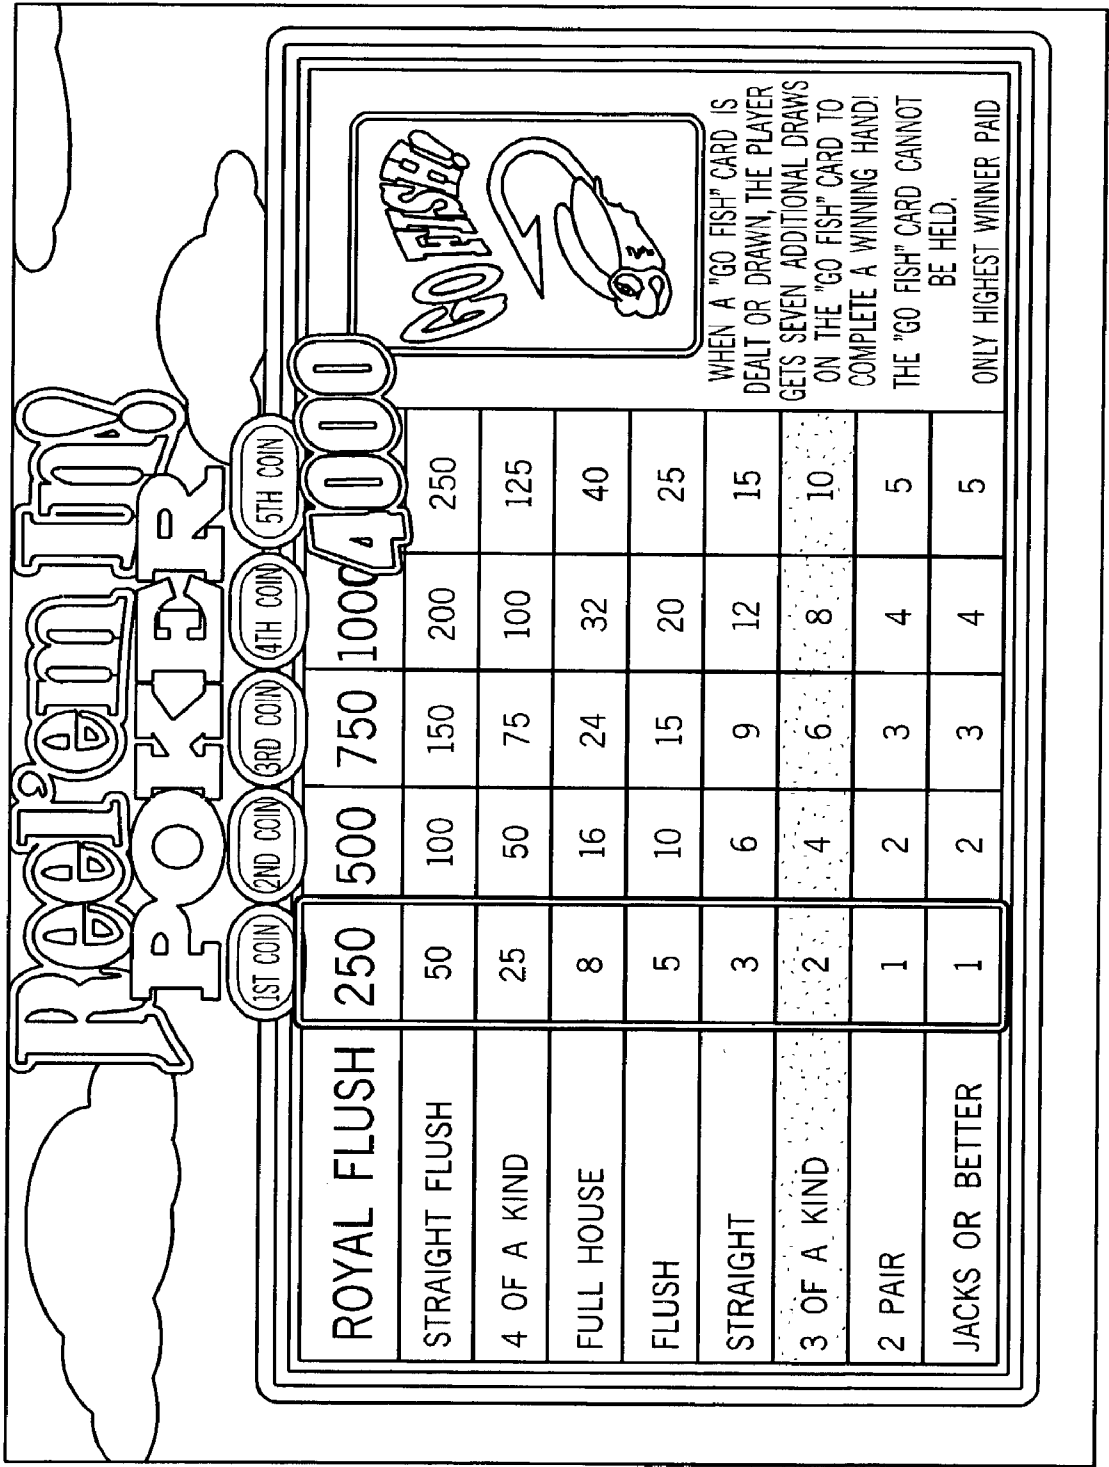 Reel'em In!
POKER
1ST COIN 2ND COIN 3RD COIN 4TH COIN 5TH COIN
ROYAL FLUSH 250 500 750 1000 4000
STRAIGHT FLUSH 50 100 150 200 250
4 OF A KIND 25 50 75 100 125
FULL HOUSE 8 16 24 32 40
FLUSH 5 10 15 20 25
STRAIGHT 3 6 9 12 15
3 OF A KIND 2 4 6 8 10
2 PAIR 1 2 3 4 5
JACKS OR BETTER 1 2 3 4 5
GO FISH!
WHEN A "GO FISH" CARD IS
DEALT OR DRAWN, THE PLAYER
GETS SEVEN ADDITIONAL DRAWS
ON THE "GO FISH" CARD TO
COMPLETE A WINNING HAND!
THE "GO FISH" CARD CANNOT
BE HELD.
ONLY HIGHEST WINNER PAID